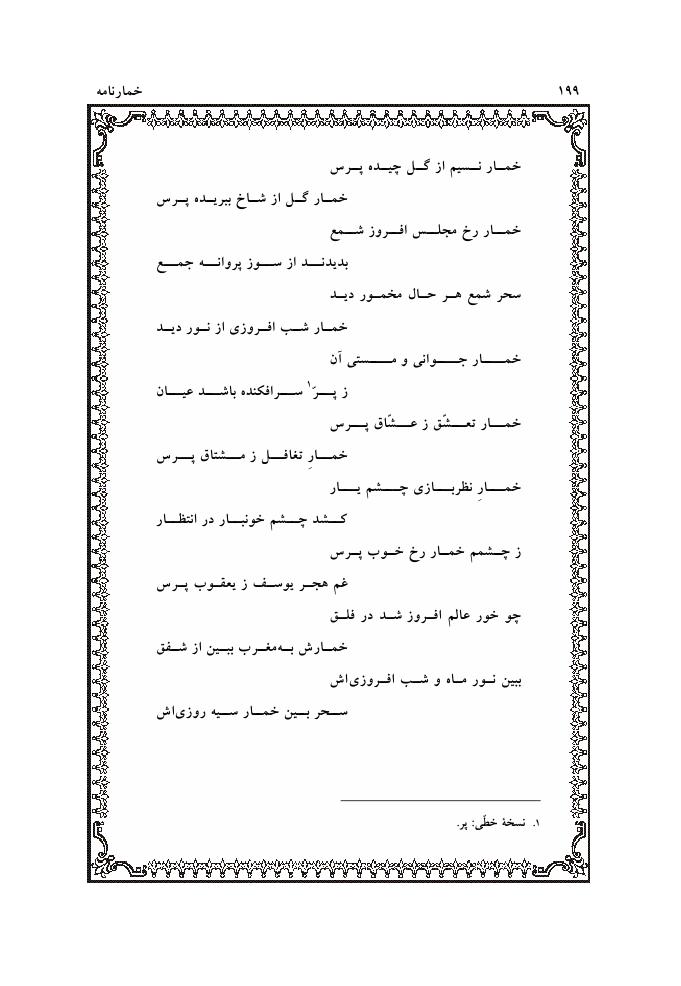 ۱۹۹
خمارنامه
خمار نسیم از گل چیده پرس
خمار گل از شاخ ببریده پرس
خمار رخ مجلس افروز شمع
بدیدند از سوز پروانه جمع
سحر شمع هر حال مخمور دید
خمار شب افروزی از نور دید
خمار جوانی و مستی آن
ز پرّ۱ سرافکنده باشد عیان
خمار تعشّق ز عشّاق پرس
خمارِ تغافل ز مشتاق پرس
خمارِ نظربازی چشم یار
کشد چشم خونبار در انتظار
ز چشمم خمار رخ خوب پرس
غم هجر یوسف ز یعقوب پرس
چو خور عالم افروز شد در فلق
خمارش به‌مغرب ببین از شفق
ببین نور ماه و شب افروزی‌اش
سحر بین خمار سیه روزی‌اش
۱. نسخهٔ خطّی: پر.